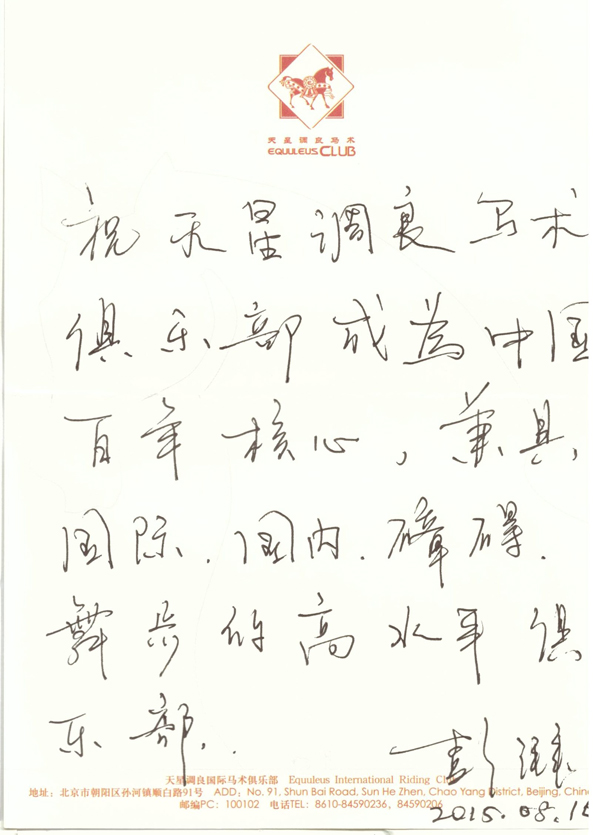 天星调良马术
EQUULEUS CLUB
祝天星调良马术
俱乐部成为中国
百年核心，兼具
国际.国内.障碍.
舞步的高水平俱
乐部.
天星调良国际马术俱乐部 Equuleus International Riding Club
地址：北京市朝阳区孙河镇顺白路91号 ADD：No. 91, Shun Bai Road, Sun He Zhen, Chao Yang District, Beijing, China
邮编PC：100102 电话TEL：8610-84590236，84590206
2015.08.16